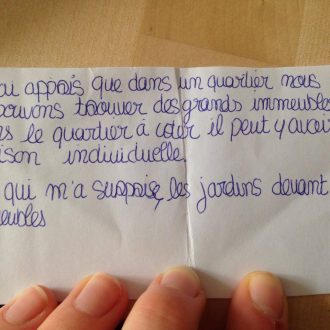 ai appris que dans un quartier nous
pouvons trouver des grands immeubles
s le quartier à coter il peut y avoir
ison individuelle.
qui m'a surprise, les jardins devant
eubles